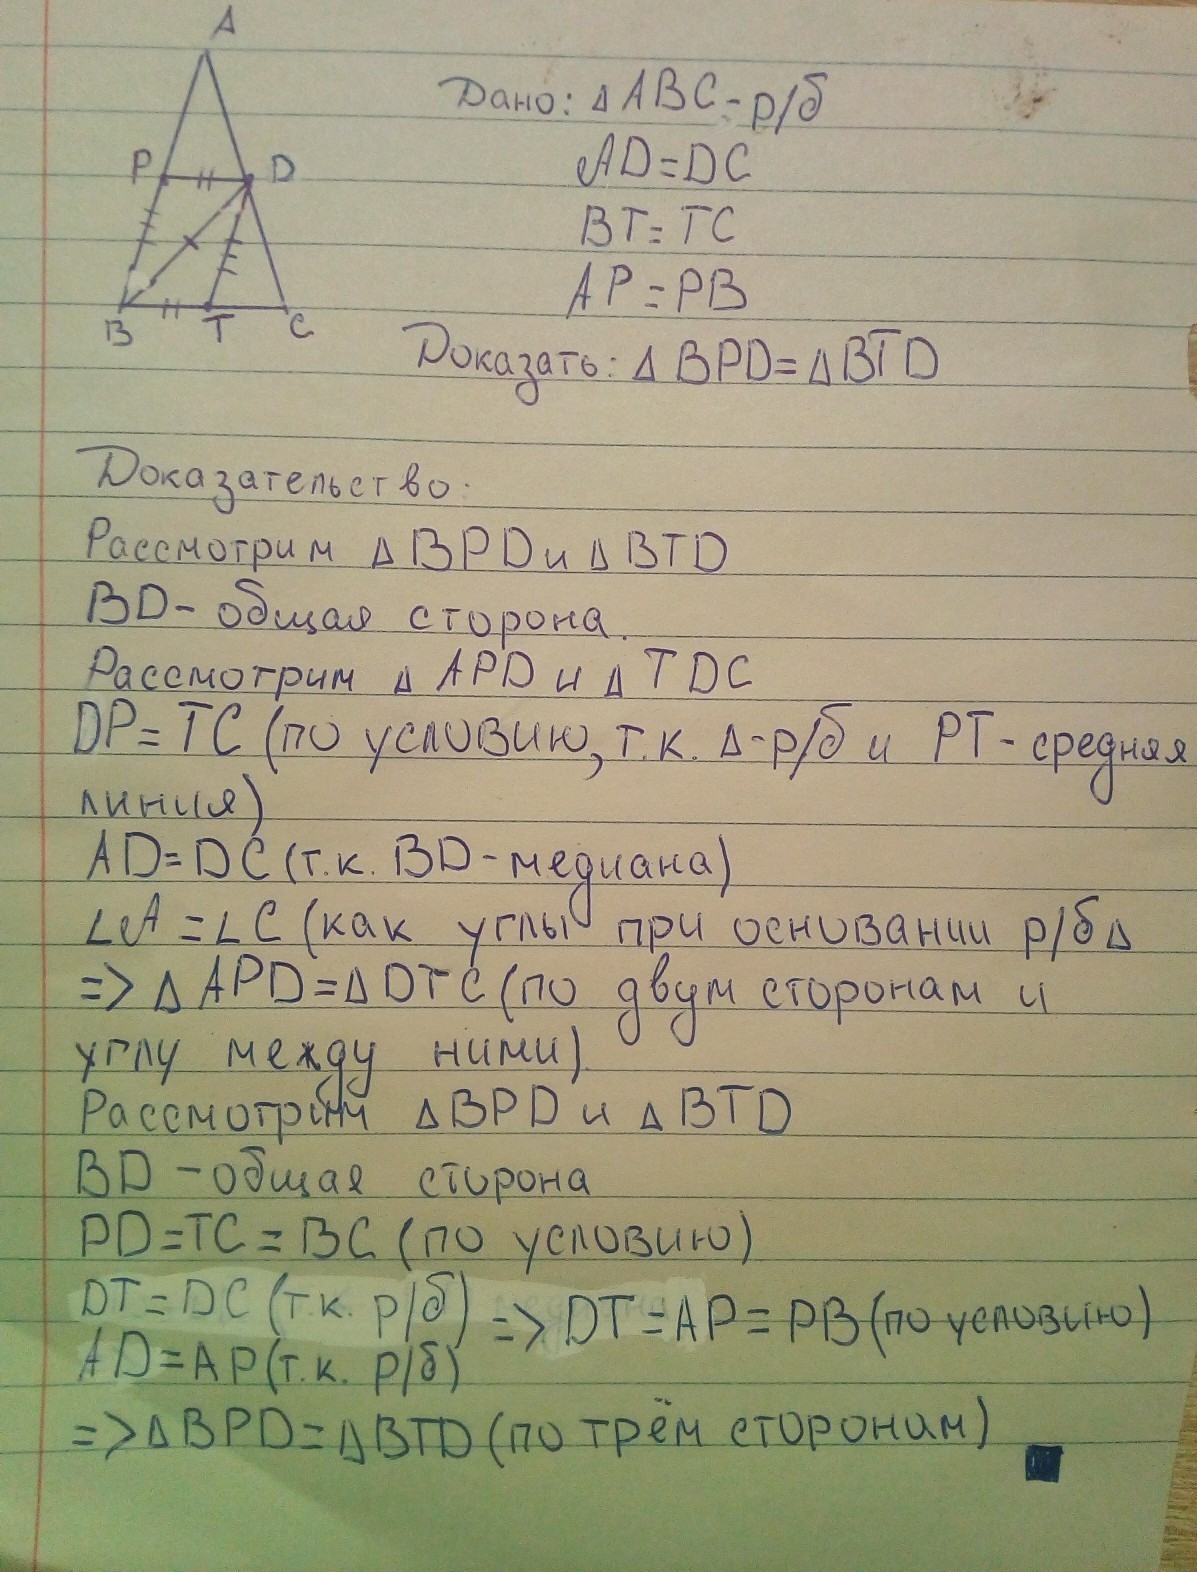 A
P
D
B
T
C
Дано: △ABC - р/б
AD=DC
BT=TC
AP=PB
Доказать: △BPD=△BTD
Доказательство:
Рассмотрим △BPD и △BTD
BD - общая сторона.
Рассмотрим △APD и △TDC
DP=TC (по условию, т.к. △-р/б и PT - средняя
линия)
AD=DC (т.к. BD - медиана)
∠A=∠C (как углы при основании р/б △
=> △APD=△DTC (по двум сторонам и
углу между ними).
Рассмотрим △BPD и △BTD
BD - общая сторона
PD=TC=BC (по условию)
DT=DC (т.к. р/б)
AD=AP (т.к. р/б)
=> DT=AP=PB (по условию)
=> △BPD=△BTD (по трём сторонам)